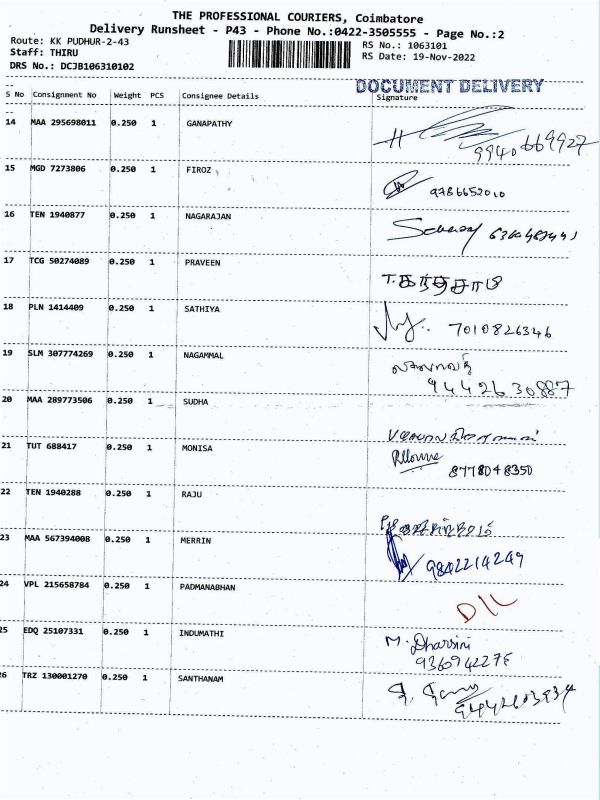 THE PROFESSIONAL COURIERS, Coimbatore
Delivery Runsheet - P43 - Phone No.:0422-3505555 - Page No.:2
Route: KK PUDHUR-2-43 RS No.: 1063101
Staff: THIRU RS Date: 19-Nov-2022
DRS No.: DCJB106310102
DOCUMENT DELIVERY
S No Consignment No Weight PCS Consignee Details Signature
14 MAA 295698011 0.250 1 GANAPATHY
9940669927
15 MGD 7273806 0.250 1 FIROZ
9786652010
16 TEN 1940877 0.250 1 NAGARAJAN
17 TCG 50274089 0.250 1 PRAVEEN
18 PLN 1414409 0.250 1 SATHIYA
7010826346
19 SLM 307774269 0.250 1 NAGAMMAL
9442630887
20 MAA 289773506 0.250 1 SUDHA
21 TUT 688417 0.250 1 MONISA
8778048350
22 TEN 1940288 0.250 1 RAJU
23 MAA 567394008 0.250 1 MERRIN
9842214249
24 VPL 215658784 0.250 1 PADMANABHAN
D/L
25 EDQ 25107331 0.250 1 INDUMATHI
M. Dharsini
9360942275
26 TRZ 130001270 0.250 1 SANTHANAM